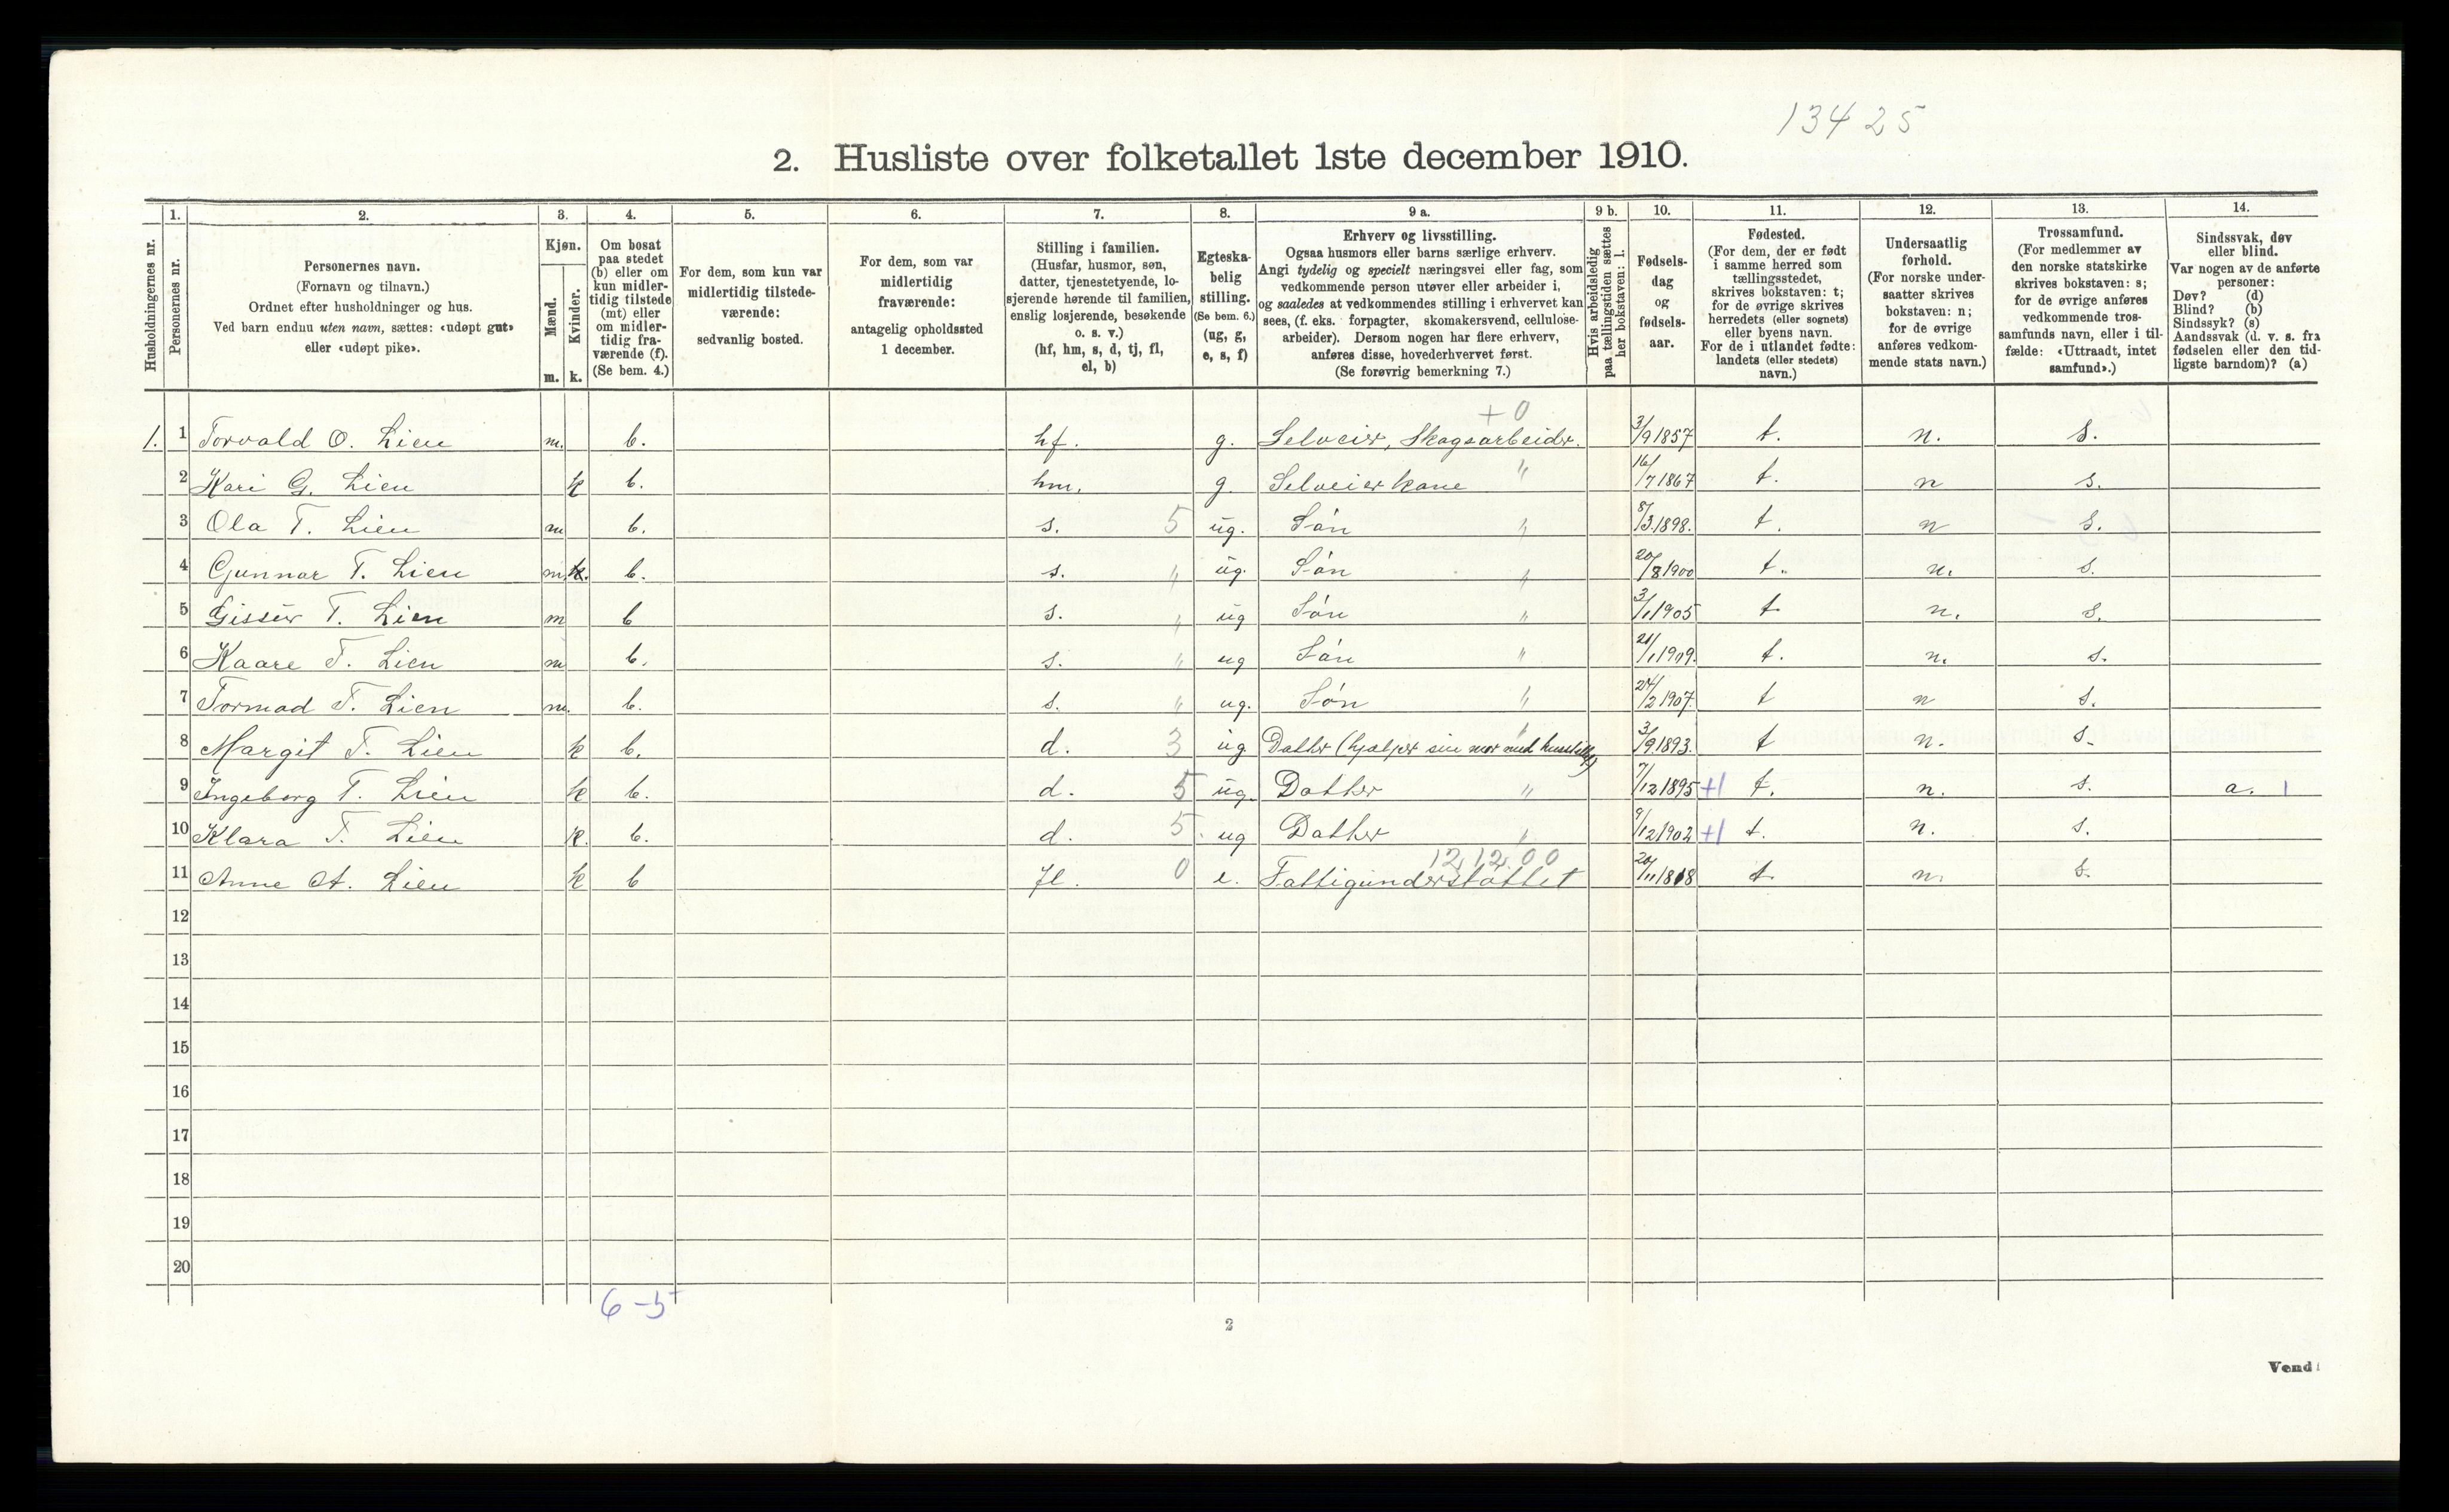 13425
2. Husliste over folketallet 1ste december 1910.
Husholdningernes nr.
1.
Personernes nr.
2.
Personernes navn.
(Fornavn og tilnavn.)
Ordnet efter husholdninger og hus.
Ved barn endnu uten navn, sættes: «udøpt gut»
eller «udøpt pike».
3.
Kjøn.
Mænd.
Kvinder.
m. k.
4.
Om bosat
paa stedet
(b) eller om
kun midler-
tidig tilstede
(mt) eller
om midler-
tidig fra-
værende (f).
(Se bem. 4.)
5.
For dem, som kun var
midlertidig tilstede-
værende:
sedvanlig bosted.
6.
For dem, som var
midlertidig
fraværende:
antagelig opholdssted
1 december.
7.
Stilling i familien.
(Husfar, husmor, søn,
datter, tjenestetyende, lo-
sjerende hørende til familien,
enslig losjerende, besøkende
o. s. v.)
(hf, hm, s, d, tj, fl,
el, b)
8.
Egteska-
belig
stilling.
(Se bem. 6.)
(ug, g,
e, s, f)
9 a.
Erhverv og livsstilling.
Ogsaa husmors eller barns særlige erhverv.
Angi tydelig og specielt næringsvei eller fag, som
vedkommende person utøver eller arbeider i,
og saaledes at vedkommendes stilling i erhvervet kan
sees, (f. eks. forpagter, skomakersvend, cellulose-
arbeider). Dersom nogen har flere erhverv,
anføres disse, hovederhvervet først.
(Se forøvrig bemerkning 7.)
9 b.
Hvis arbeidsledig
paa tællingstiden sættes
her bokstaven: l.
10.
Fødsels-
dag
og
fødsels-
aar.
11.
Fødested.
(For dem, der er født
i samme herred som
tællingsstedet,
skrives bokstaven: t;
for de øvrige skrives
herredets (eller sognets)
eller byens navn.
For de i utlandet fødte:
landets (eller stedets)
navn.)
12.
Undersaatlig
forhold.
(For norske under-
saatter skrives
bokstaven: n;
for de øvrige
anføres vedkom-
mende stats navn.)
13.
Trossamfund.
(For medlemmer av
den norske statskirke
skrives bokstaven: s;
for de øvrige anføres
vedkommende tros-
samfunds navn, eller i til-
fælde: «Uttraadt, intet
samfund».)
14.
Sindssvak, døv
eller blind.
Var nogen av de anførte
personer:
Døv? (d)
Blind? (b)
Sindssyk? (s)
Aandssvak (d. v. s. fra
fødselen eller den tid-
ligste barndom)? (a)
+0
1. 1 Torvald O. Lien m. b. hf. g. Selveier, Skogsarbeider. 3/9 1857 t. n. s.
2 Kari G. Lien k b. hm. g. Selveierkone " 16/7 1867 t. n s.
3 Ola T. Lien m b. s. 5 ug. Søn " 8/3 1898. t. n s.
4 Gunnar T. Lien m. k. b. s. " ug. Søn " 20/8 1900 t. n. s.
5 Gissur T. Lien m b s. " ug Søn " 3/1 1905 t n. s.
6 Kaare T. Lien m b. s. " ug Søn " 21/1 1909. t. n. s.
7 Tormod T. Lien m. b. s. " ug. Søn " 24/2 1907. t n s.
8 Margit T. Lien k b. d. 3 ug Datter (hjælper sin mor med husstellet) " 3/9 1893. t n. s.
9 Ingeborg T. Lien k b. d. 5 ug. Datter " 7/12 1895 +1 t. n. s. a. 1
10 Klara T. Lien k. b. d. 5. ug Datter " 9/12 1902 +1 t. n. s.
12.12.00
11 Anne A. Lien k b fl. 0 e. Fattigunderstøttet 20/11 1818 t. n. s.
12
13
14
15
16
17
18
19
20
6-5
2
Vend